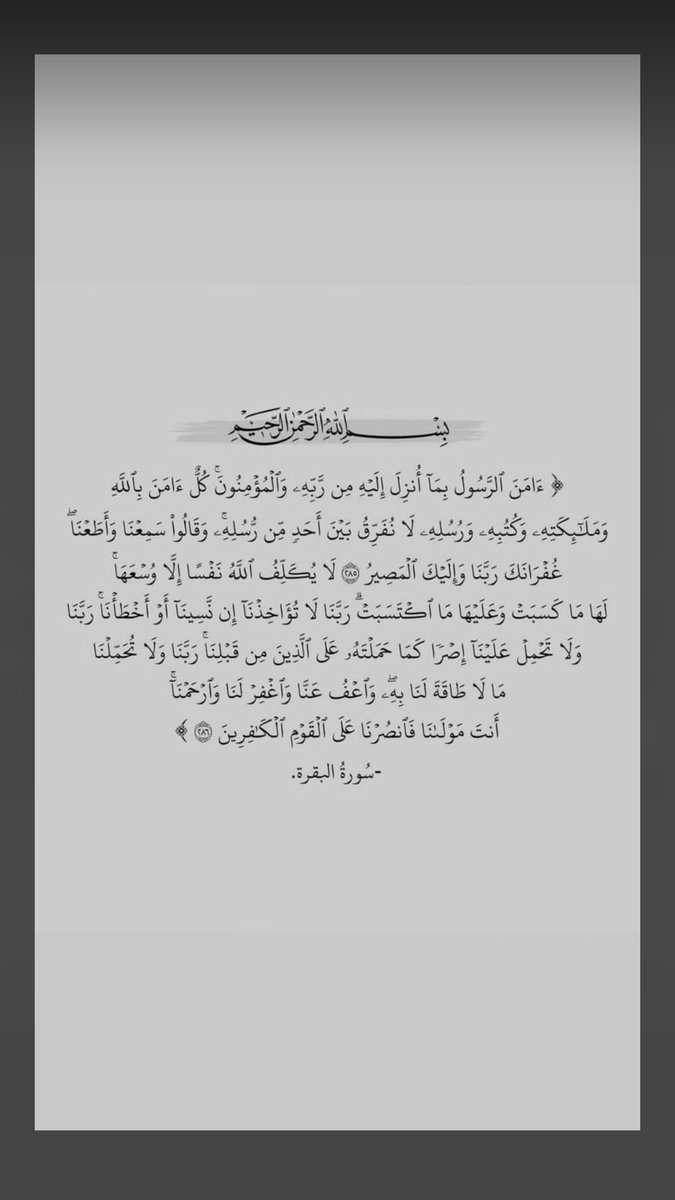 بِسْمِ ٱللَّهِ ٱلرَّحْمَٰنِ ٱلرَّحِيمِ
﴿ ءَامَنَ ٱلرَّسُولُ بِمَآ أُنزِلَ إِلَيْهِ مِن رَّبِّهِۦ وَٱلْمُؤْمِنُونَۚ كُلٌّ ءَامَنَ بِٱللَّهِ
وَمَلَـٰٓئِكَتِهِۦ وَكُتُبِهِۦ وَرُسُلِهِۦ لَا نُفَرِّقُ بَيْنَ أَحَدٍ مِّن رُّسُلِهِۦۚ وَقَالُوا۟ سَمِعْنَا وَأَطَعْنَاۖ
غُفْرَانَكَ رَبَّنَا وَإِلَيْكَ ٱلْمَصِيرُ ٢٨٥ لَا يُكَلِّفُ ٱللَّهُ نَفْسًا إِلَّا وُسْعَهَاۚ
لَهَا مَا كَسَبَتْ وَعَلَيْهَا مَا ٱكْتَسَبَتْۗ رَبَّنَا لَا تُؤَاخِذْنَآ إِن نَّسِينَآ أَوْ أَخْطَأْنَاۚ رَبَّنَا
وَلَا تَحْمِلْ عَلَيْنَآ إِصْرًا كَمَا حَمَلْتَهُۥ عَلَى ٱلَّذِينَ مِن قَبْلِنَاۚ رَبَّنَا وَلَا تُحَمِّلْنَا
مَا لَا طَاقَةَ لَنَا بِهِۦۖ وَٱعْفُ عَنَّا وَٱغْفِرْ لَنَا وَٱرْحَمْنَآۚ
أَنتَ مَوْلَىٰنَا فَٱنصُرْنَا عَلَى ٱلْقَوْمِ ٱلْكَـٰفِرِينَ ٢٨٦ ﴾
-سُورةُ البقرة.